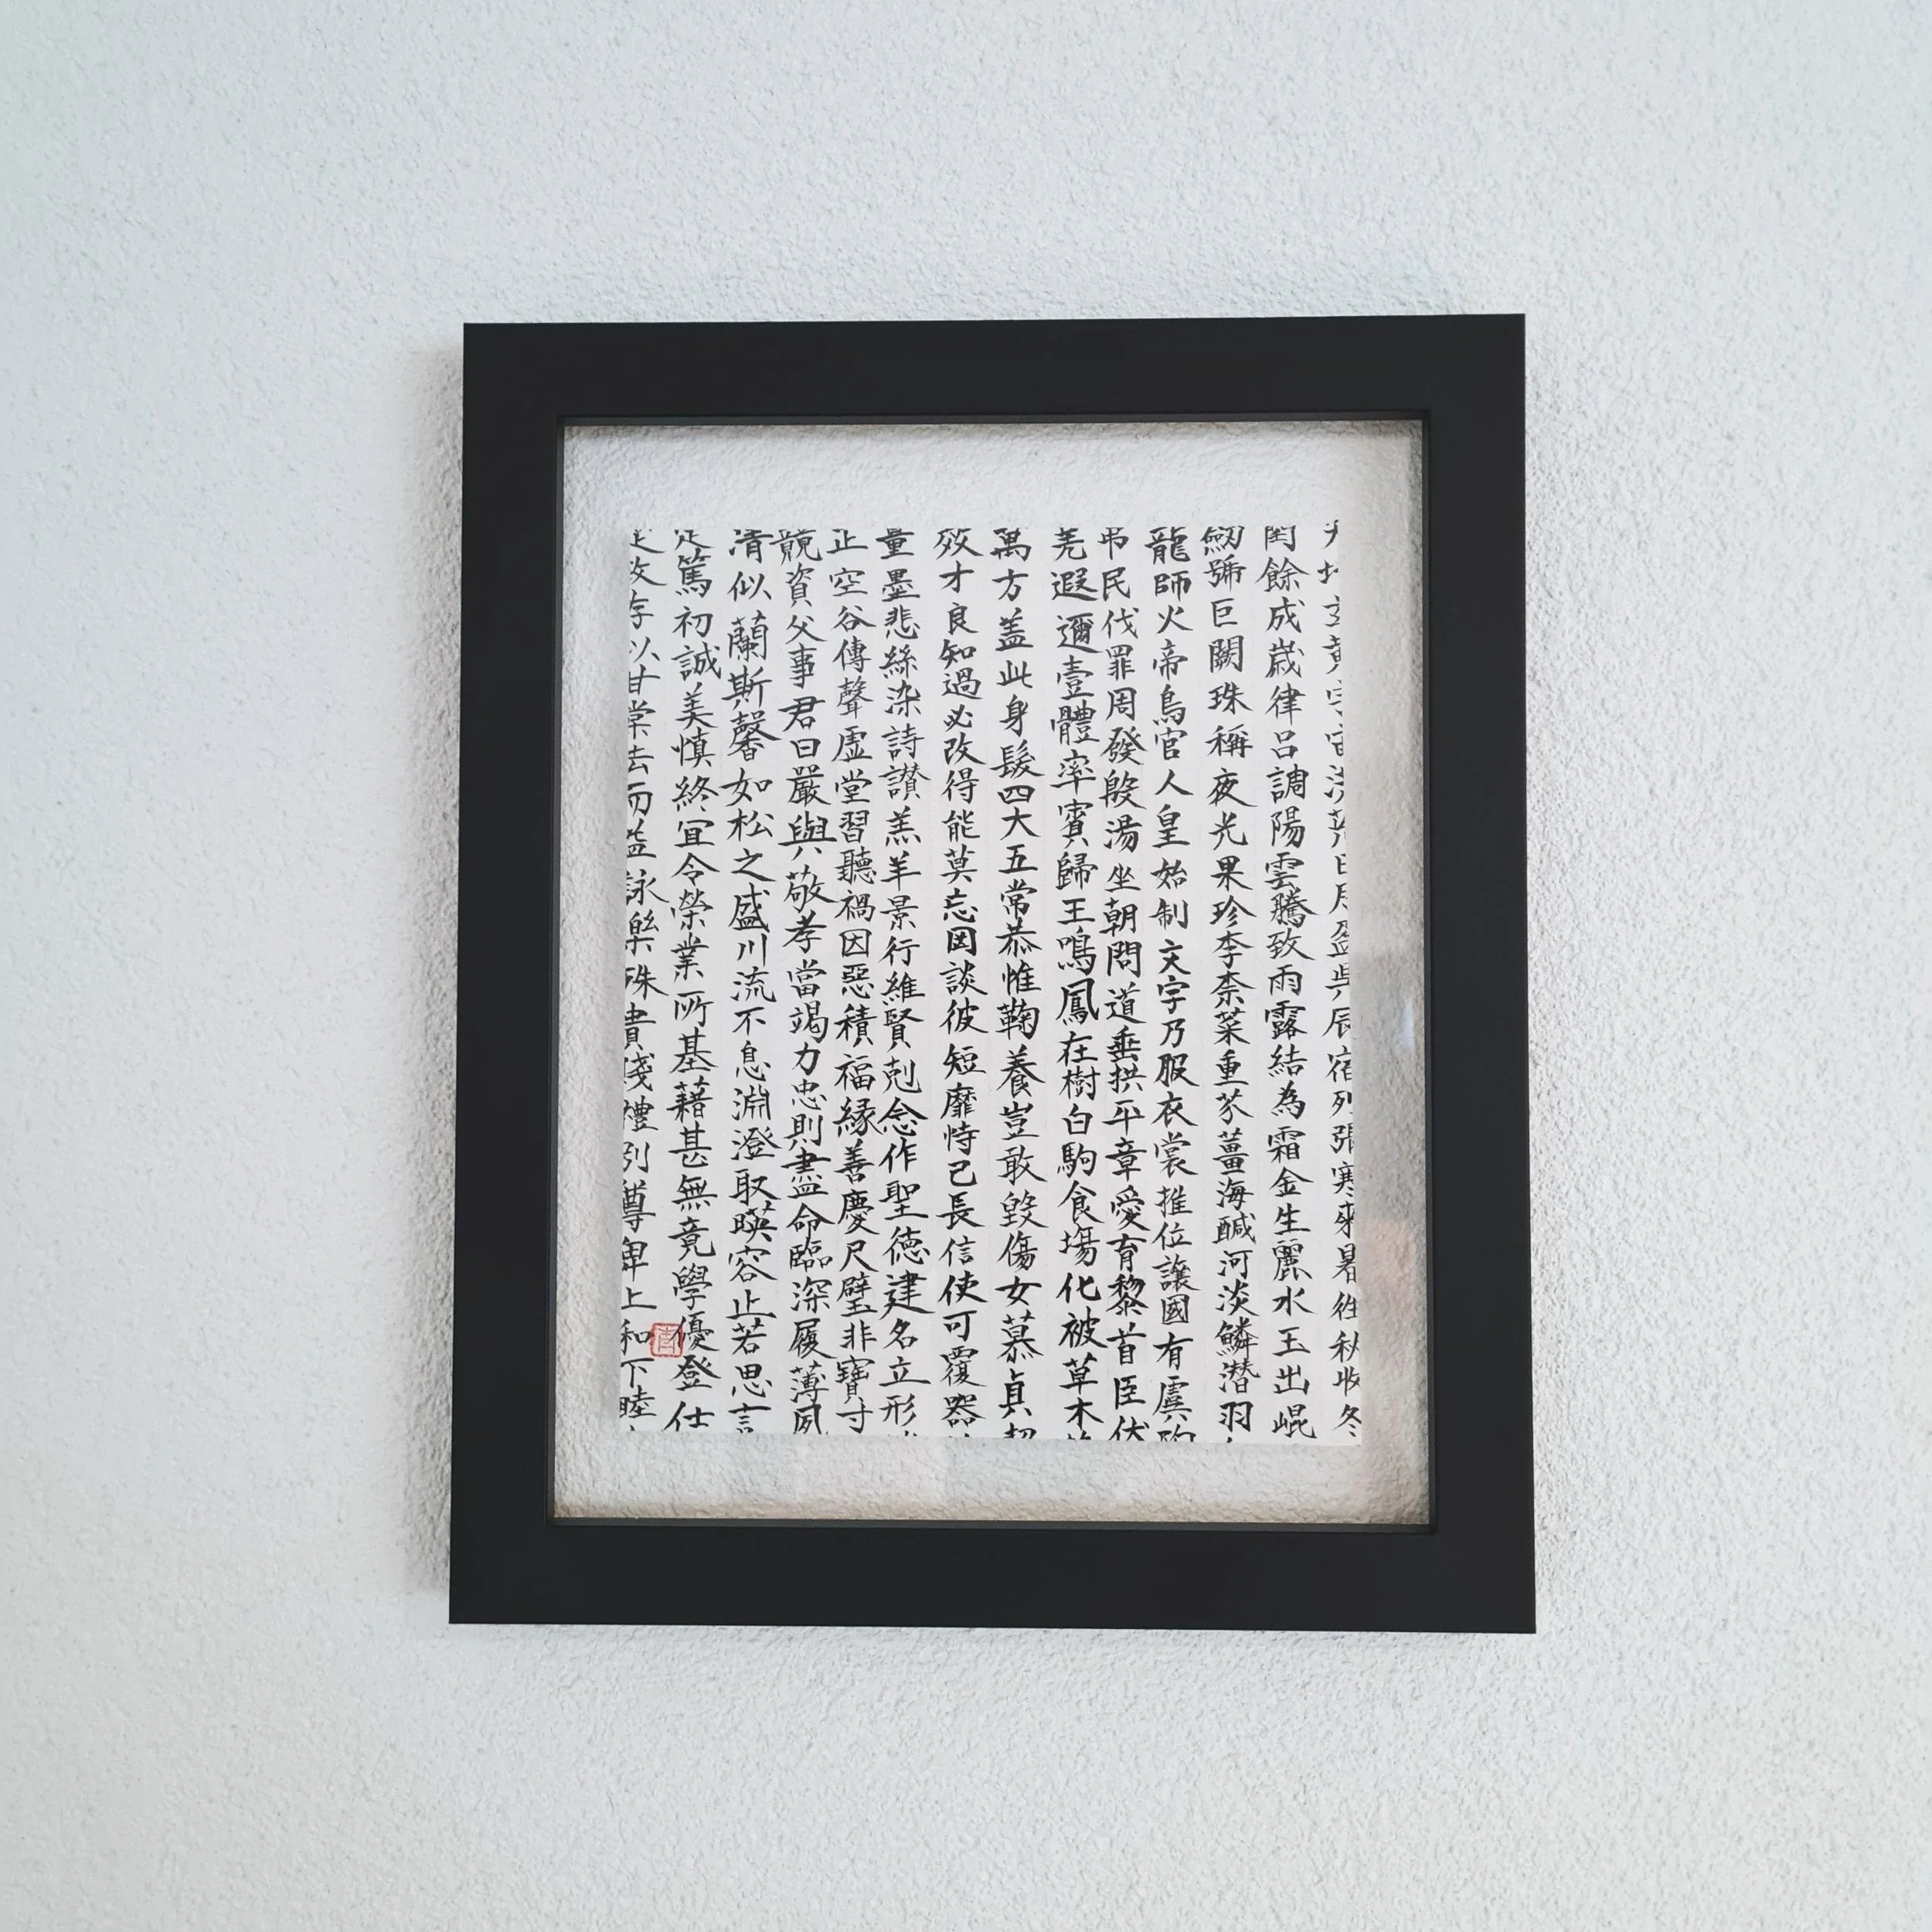 天地玄黄宇宙洪荒日月盈昃辰宿列張寒來暑往秋收冬
閏餘成歲律呂調陽雲騰致雨露結為霜金生麗水玉出崐
劒號巨闕珠稱夜光果珍李柰菜重芥薑海醎河淡鱗潛羽
龍師火帝鳥官人皇始制文字乃服衣裳推位讓國有虞陶
弔民伐罪周發殷湯坐朝問道垂拱平章愛育黎首臣伏
羌遐邇壹體率賓歸王鳴鳳在樹白駒食場化被草木
萬方蓋此身髮四大五常恭惟鞠養豈敢毀傷女慕貞
效才良知過必改得能莫忘罔談彼短靡恃己長信使可覆器
量墨悲絲染詩讃羔羊景行維賢剋念作聖德建名立形
正空谷傳聲虛堂習聽禍因惡積福緣善慶尺璧非寶寸
競資父事君曰嚴與敬孝當竭力忠則盡命臨深履薄夙
清似蘭斯馨如松之盛川流不息淵澄取暎容止若思言
定篤初誠美慎終宜令榮業所基藉甚無竟學優登仕
政存以甘棠去而益詠樂殊貴賤禮別尊卑上和下睦